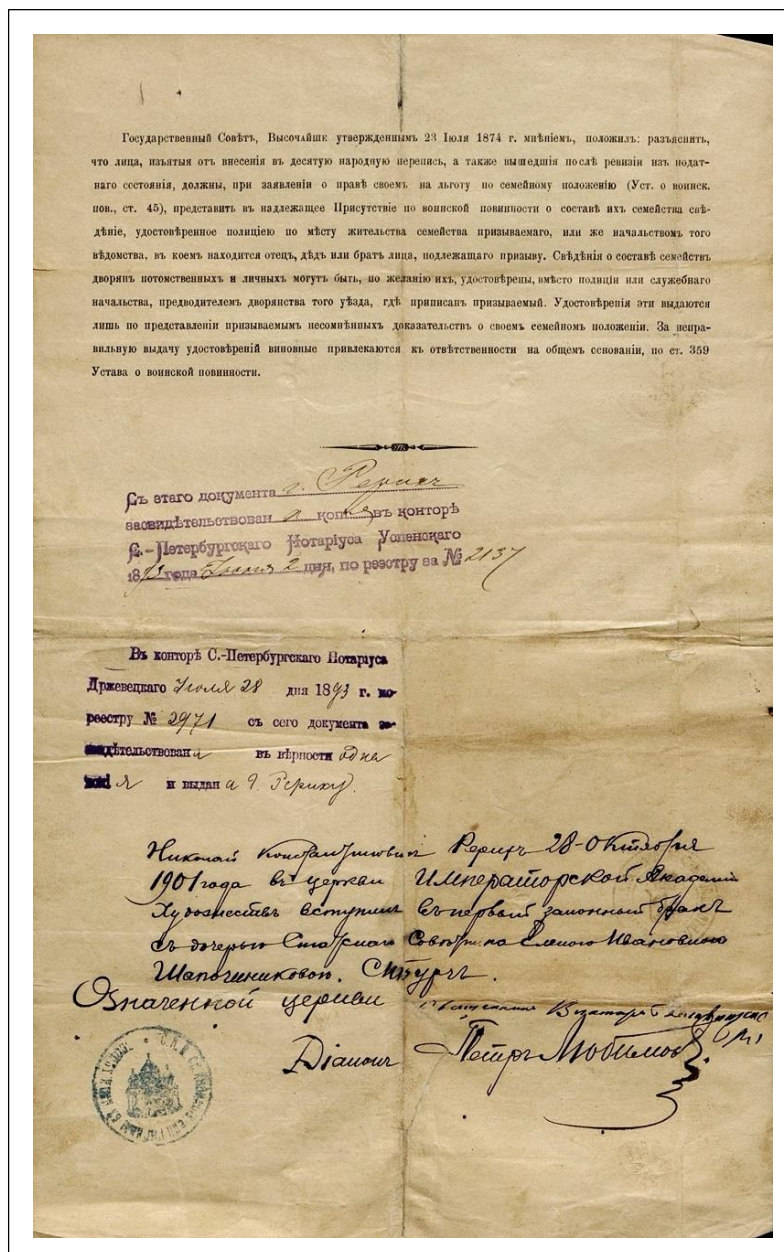 Государственный Совѣтъ, Высочайше утвержденнымъ 23 Іюля 1874 г. мнѣніемъ, положилъ: разъяснить,
что лица, изъятыя отъ внесенія въ десятую народную перепись, а также вышедшія послѣ ревизіи изъ подат-
наго состоянія, должны, при заявленіи о правѣ своемъ на льготу по семейному положенію (Уст. о воинск.
пов., ст. 45), представить въ надлежащее Присутствіе по воинской повинности о составѣ ихъ семейства свѣ-
дѣніе, удостовѣренное полиціею по мѣсту жительства семейства призываемаго, или же начальствомъ того
вѣдомства, въ коемъ находится отецъ, дѣдъ или братъ лица, подлежащаго призыву. Свѣдѣнія о составѣ семействъ
дворянъ потомственныхъ и личныхъ могутъ быть, по желанію ихъ, удостовѣрены, вмѣсто полиціи или служебнаго
начальства, предводителемъ дворянства того уѣзда, гдѣ приписанъ призываемый. Удостовѣренія эти выдаются
лишь по представленіи призываемымъ несомнѣнныхъ доказательствъ о своемъ семейномъ положеніи. За непра-
вильную выдачу удостовѣреній виновные привлекаются къ отвѣтственности на общемъ основаніи, по ст. 359
Устава о воинской повинности.
Съ этаго документа г. Рерихъ
засвидѣтельствована копія въ конторѣ
С.-Петербургскаго Нотаріуса Успенскаго
1893 года Іюня 2 дня, по реэстру за № 2137
Въ конторѣ С.-Петербургскаго Нотаріуса
Држевецкаго Іюля 28 дня 1893 г. по
реестру № 2971 съ сего документа за-
свидѣтельствована въ вѣрности одна
копія и выдана г. Рериху.
Николай Константиновичъ Рерихъ 28-Октября
1901 года въ церкви Императорской Академіи
Художествъ вступилъ въ первый законный бракъ
съ дочерью Статскаго Совѣтника Еленою Ивановною
Шапошниковою.
Означенной церкви
Діаконъ Петръ Любимовъ